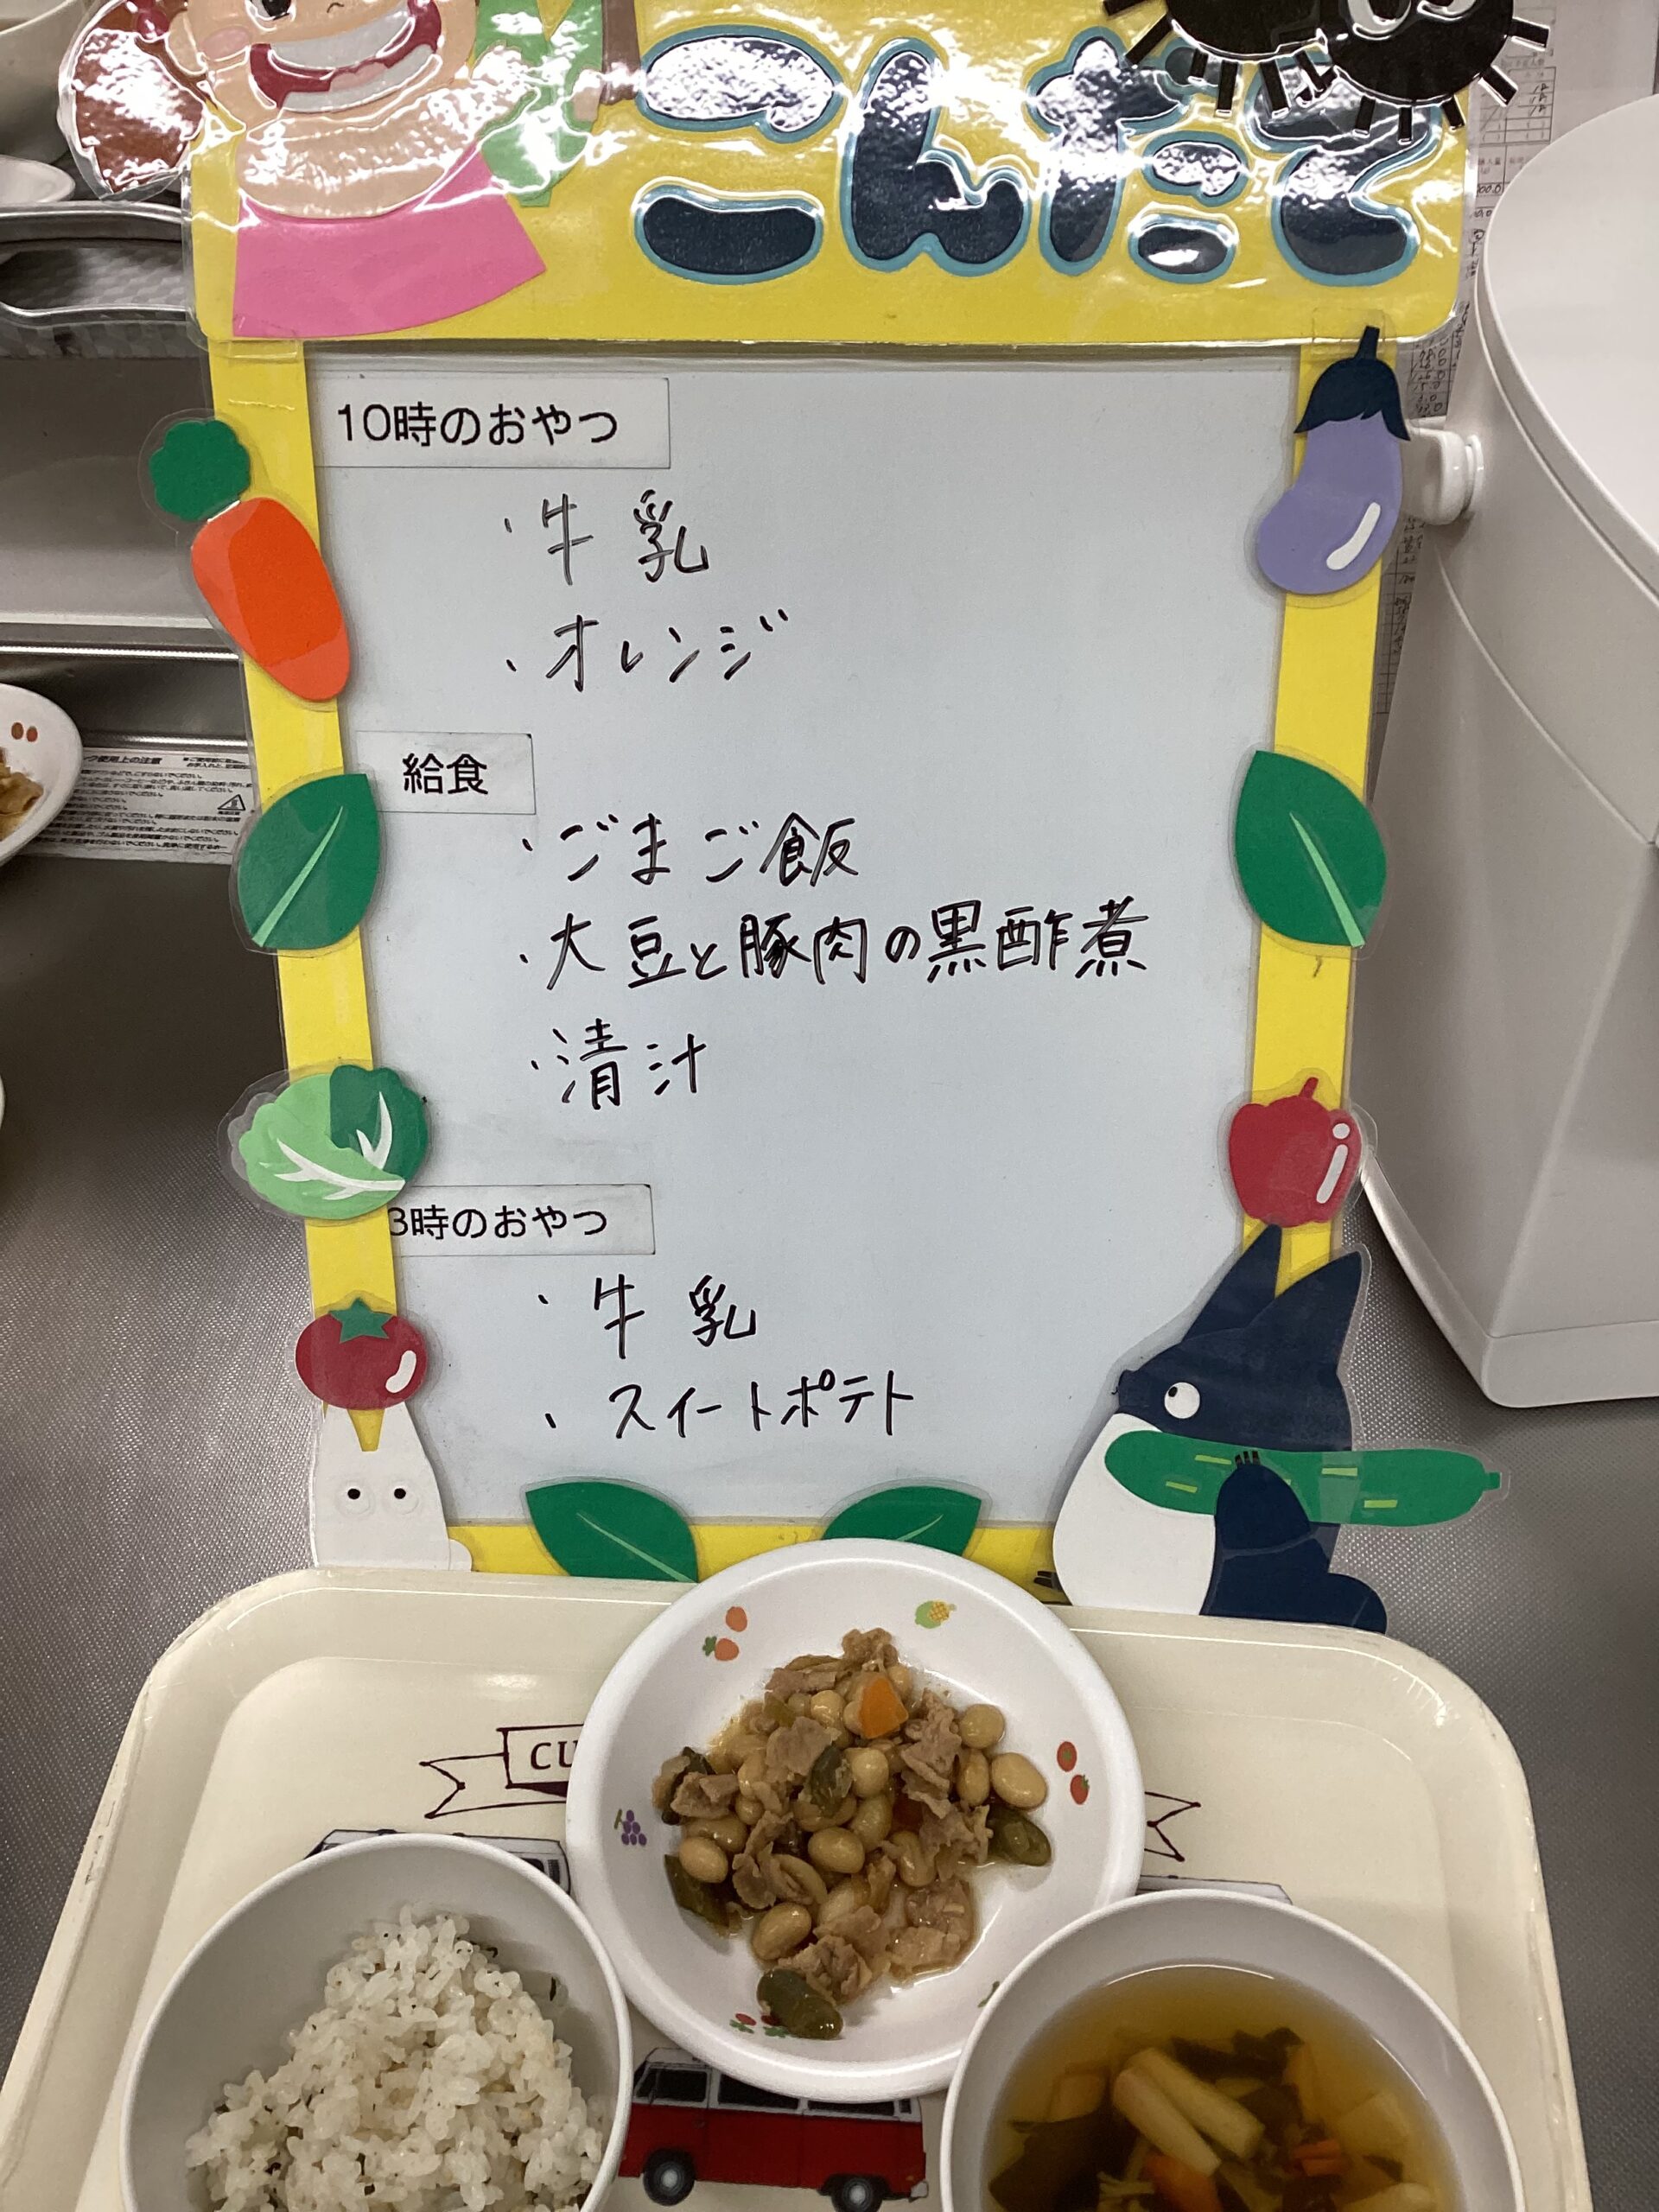 こんだて
10時のおやつ
・牛乳
・オレンジ
給食
・ごまご飯
・大豆と豚肉の黒酢煮
・清汁
3時のおやつ
・牛乳
・スイートポテト
CU